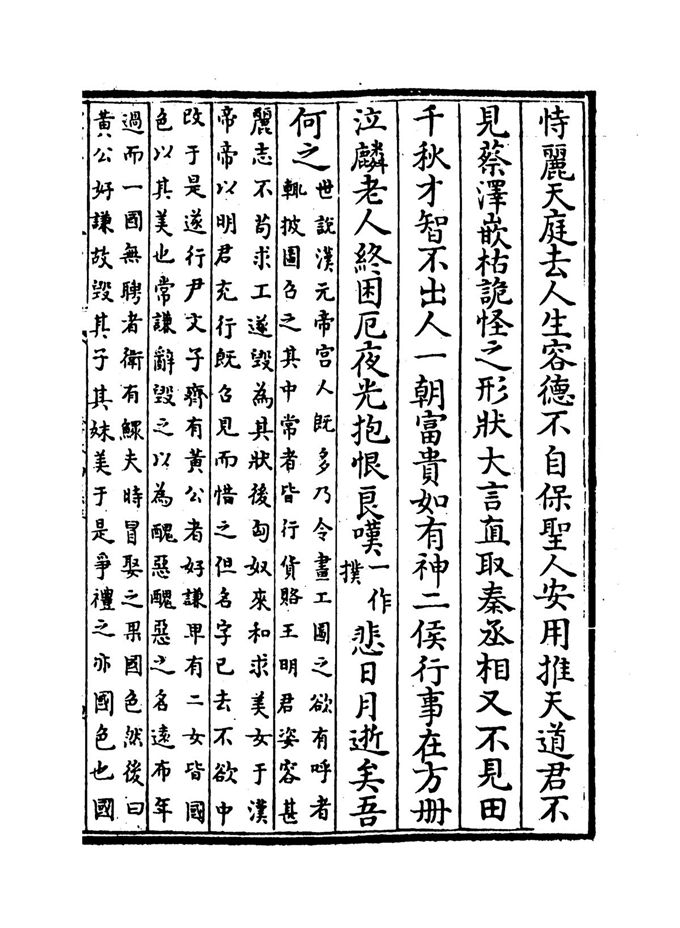 恃麗天庭去人生容德不自保聖人安用推天道君不
見蔡澤嵌枯詭怪之形狀大言直取秦丞相又不見田
千秋才智不出人一朝富貴如有神二侯行事在方冊
泣麟老人終困厄夜光抱恨良嘆一作撲悲日月逝矣吾
何之世說漢元帝宫人既多乃令畫工圖之欲有呼者
輒披圖召之其中常者皆行貨賂王明君姿容甚
麗志不苟求工遂毀為其狀後匈奴來和求美女于漢
帝帝以明君充行既召見而惜之但名字已去不欲中
改于是遂行尹文子齊有黃公者好謙卑有二女皆國
色以其美也常謙辭毀之以為醜惡醜惡之名遠布年
過而一國無聘者衛有鰥夫時冒娶之果國色然後曰
黃公好謙故毀其子其妹美于是爭禮之亦國色也國